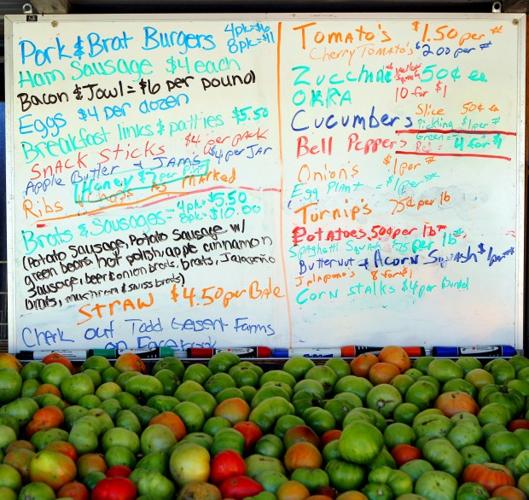 Pork & Brat Burgers 4pk=$6
8pk=$11
Ham Sausage $4 each
Bacon & Jowl = $6 per pound
Eggs $4 per dozen
Breakfast links & patties $5.50
Snack Sticks $4 per pack
Apple Butter + Jams $4 per Jar
Honey $7 per
Ribs Chops as marked
Brats & Sausages = 4pk=$5.50
8pk=$10.00
(Potato Sausage, Potato Sausage w/
green beans, hot polish, apple cinnamon
Sausage, beer & onion brats, Brats, Jalapeño
Brats, mushroom & swiss brats)
STRAW $4.50 per Bale
Check out Todd Geisert Farms
on Facebook
Tomato's $1.50 per #
Cherry Tomato's $2.00 per #
Zucchini 50¢ ea
OKRA 10 for $1
Cucumbers Slice 50¢ ea
Pickling $1 per #
Bell Peppers Green=
Red= 4 for $1
Onion's $1 per #
Egg Plant = $1 per
Turnip's 75¢ per lb
Potatoes 50¢ per lb
Spaghetti Squash 75¢ per lb
Butternut + Acorn Squash $1 per #
Jalapeno's 8 for $1
Corn Stalks $4 per Bundle